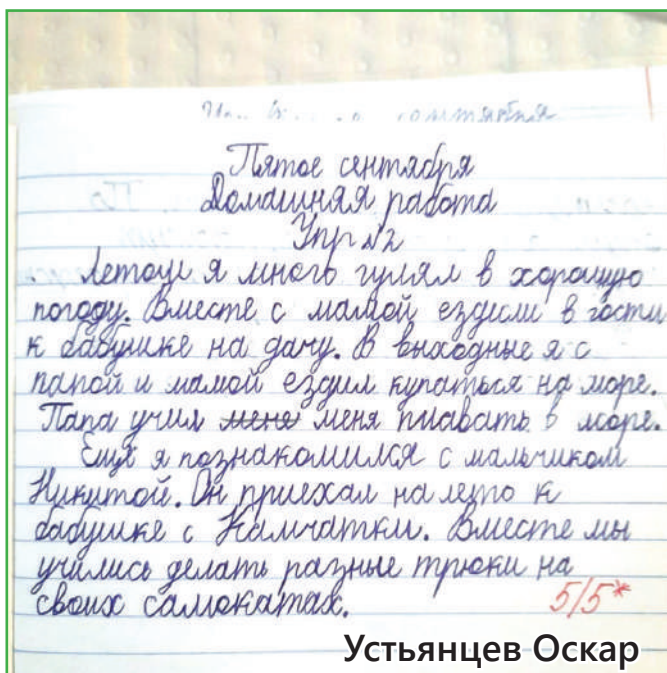 Пятое сентября
Домашняя работа
Упр №2
Летом я много гулял в хорошую
погоду. Вместе с мамой ездили в гости
к бабушке на дачу. В выходные я с
папой и мамой ездил купаться на море.
Папа учил мене меня плавать в море.
Ещё я познакомился с мальчиком
Никитой. Он приехал на лето к
бабушке с Камчатки. Вместе мы
учились делать разные трюки на
своих самокатах.
5/5*
Устьянцев Оскар